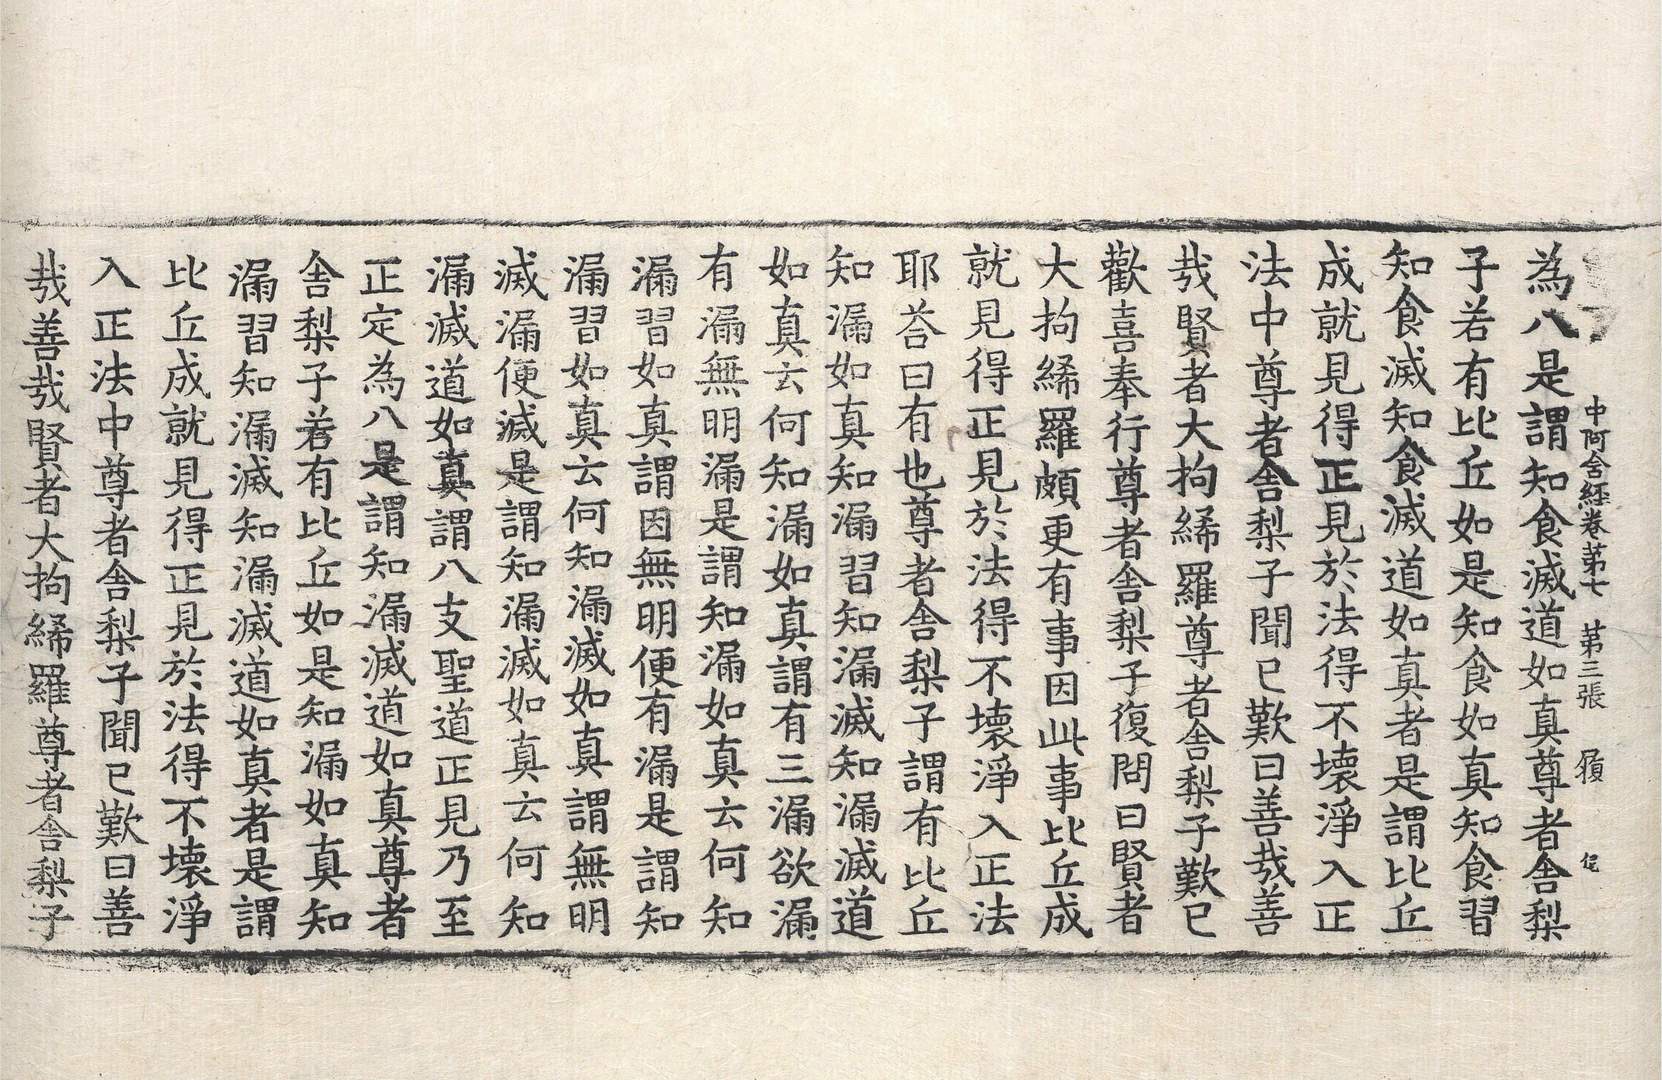 中阿含經卷第七 第三張
為八是謂知食滅道如真尊者舍梨
子若有比丘如是知食如真知食習
知食滅知食滅道如真者是謂比丘
成就見得正見於法得不壞淨入正
法中尊者舍梨子聞已歎曰善哉善
哉賢者大拘絺羅尊者舍梨子歎已
歡喜奉行尊者舍梨子復問曰賢者
大拘絺羅頗更有事因此事比丘成
就見得正見於法得不壞淨入正法
耶荅曰有也尊者舍梨子謂有比丘
知漏如真知漏習知漏滅知漏滅道
如真云何知漏如真謂有三漏欲漏
有漏無明漏是謂知漏如真云何知
漏習如真謂因無明便有漏是謂知
漏習如真云何知漏滅如真謂無明
滅漏便滅是謂知漏滅如真云何知
漏滅道如真謂八支聖道正見乃至
正定為八是謂知漏滅道如真尊者
舍梨子若有比丘如是知漏如真知
漏習知漏滅知漏滅道如真者是謂
比丘成就見得正見於法得不壞淨
入正法中尊者舍梨子聞已歎曰善
哉善哉賢者大拘絺羅尊者舍梨子